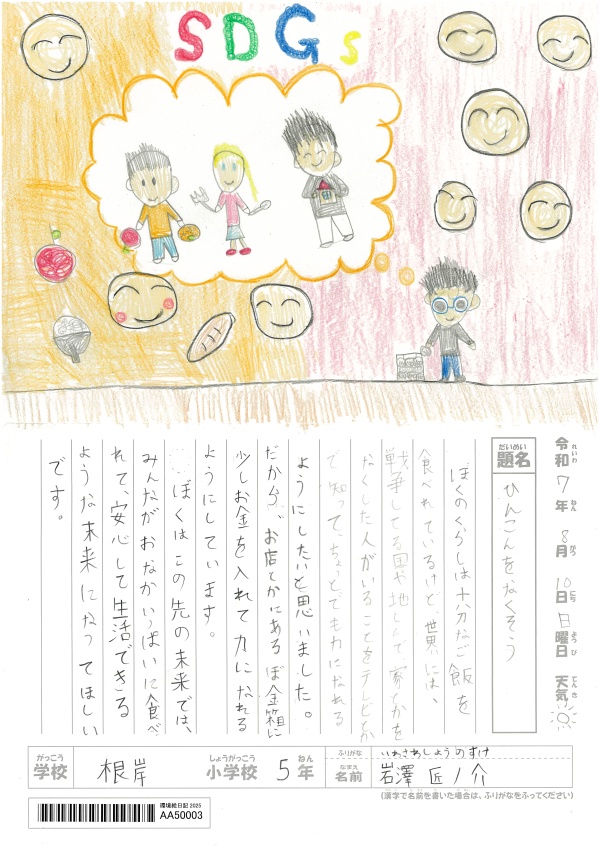 SDGs
令和7年8月10日日曜日 天気
れいわ ねん がつ にち ようび てんき
だいめい
題名 ひんこんをなくそう
ぼくのくらしは十分なご飯を
食べれているけど、世界には、
戦争してる国や地しんで家とかを
なくした人がいることをテレビとか
で知って、ちょっとでも力になれる
ようにしたいと思いました。
だから、お店とかにあるぼ金箱に
少しお金を入れて力になれる
ようにしています。
ぼくはこの先の未来では、
みんながおなかいっぱいに食べ
れて、安心して生活できる
ような未来になってほしい
です。
がっこう しょうがっこう ねん
学校 根岸 小学校 5年
ふりがな いわさわしょうのすけ
なまえ
名前 岩澤 匠ノ介
(漢字で名前を書いた場合は、ふりがなをふってください)
環境絵日記 2025
AA50003